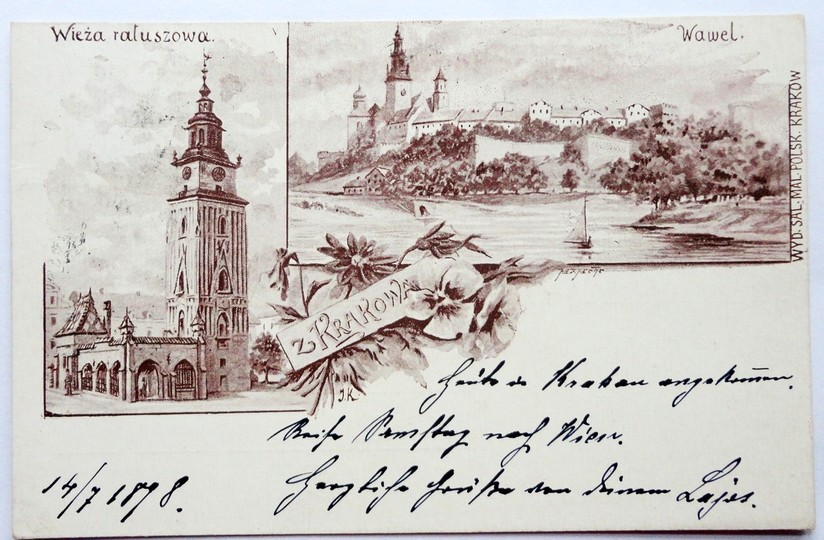 Wieża ratuszowa.
Wawel.
WYD. SAL. MAL. POLSK. KRAKÓW
Z KRAKOWA
J.K.
Heute in Krakau angekom̅en.
Reise Samstag nach Wien.
Herzliche Grüße von deinem Lajos.
14/7 1898.